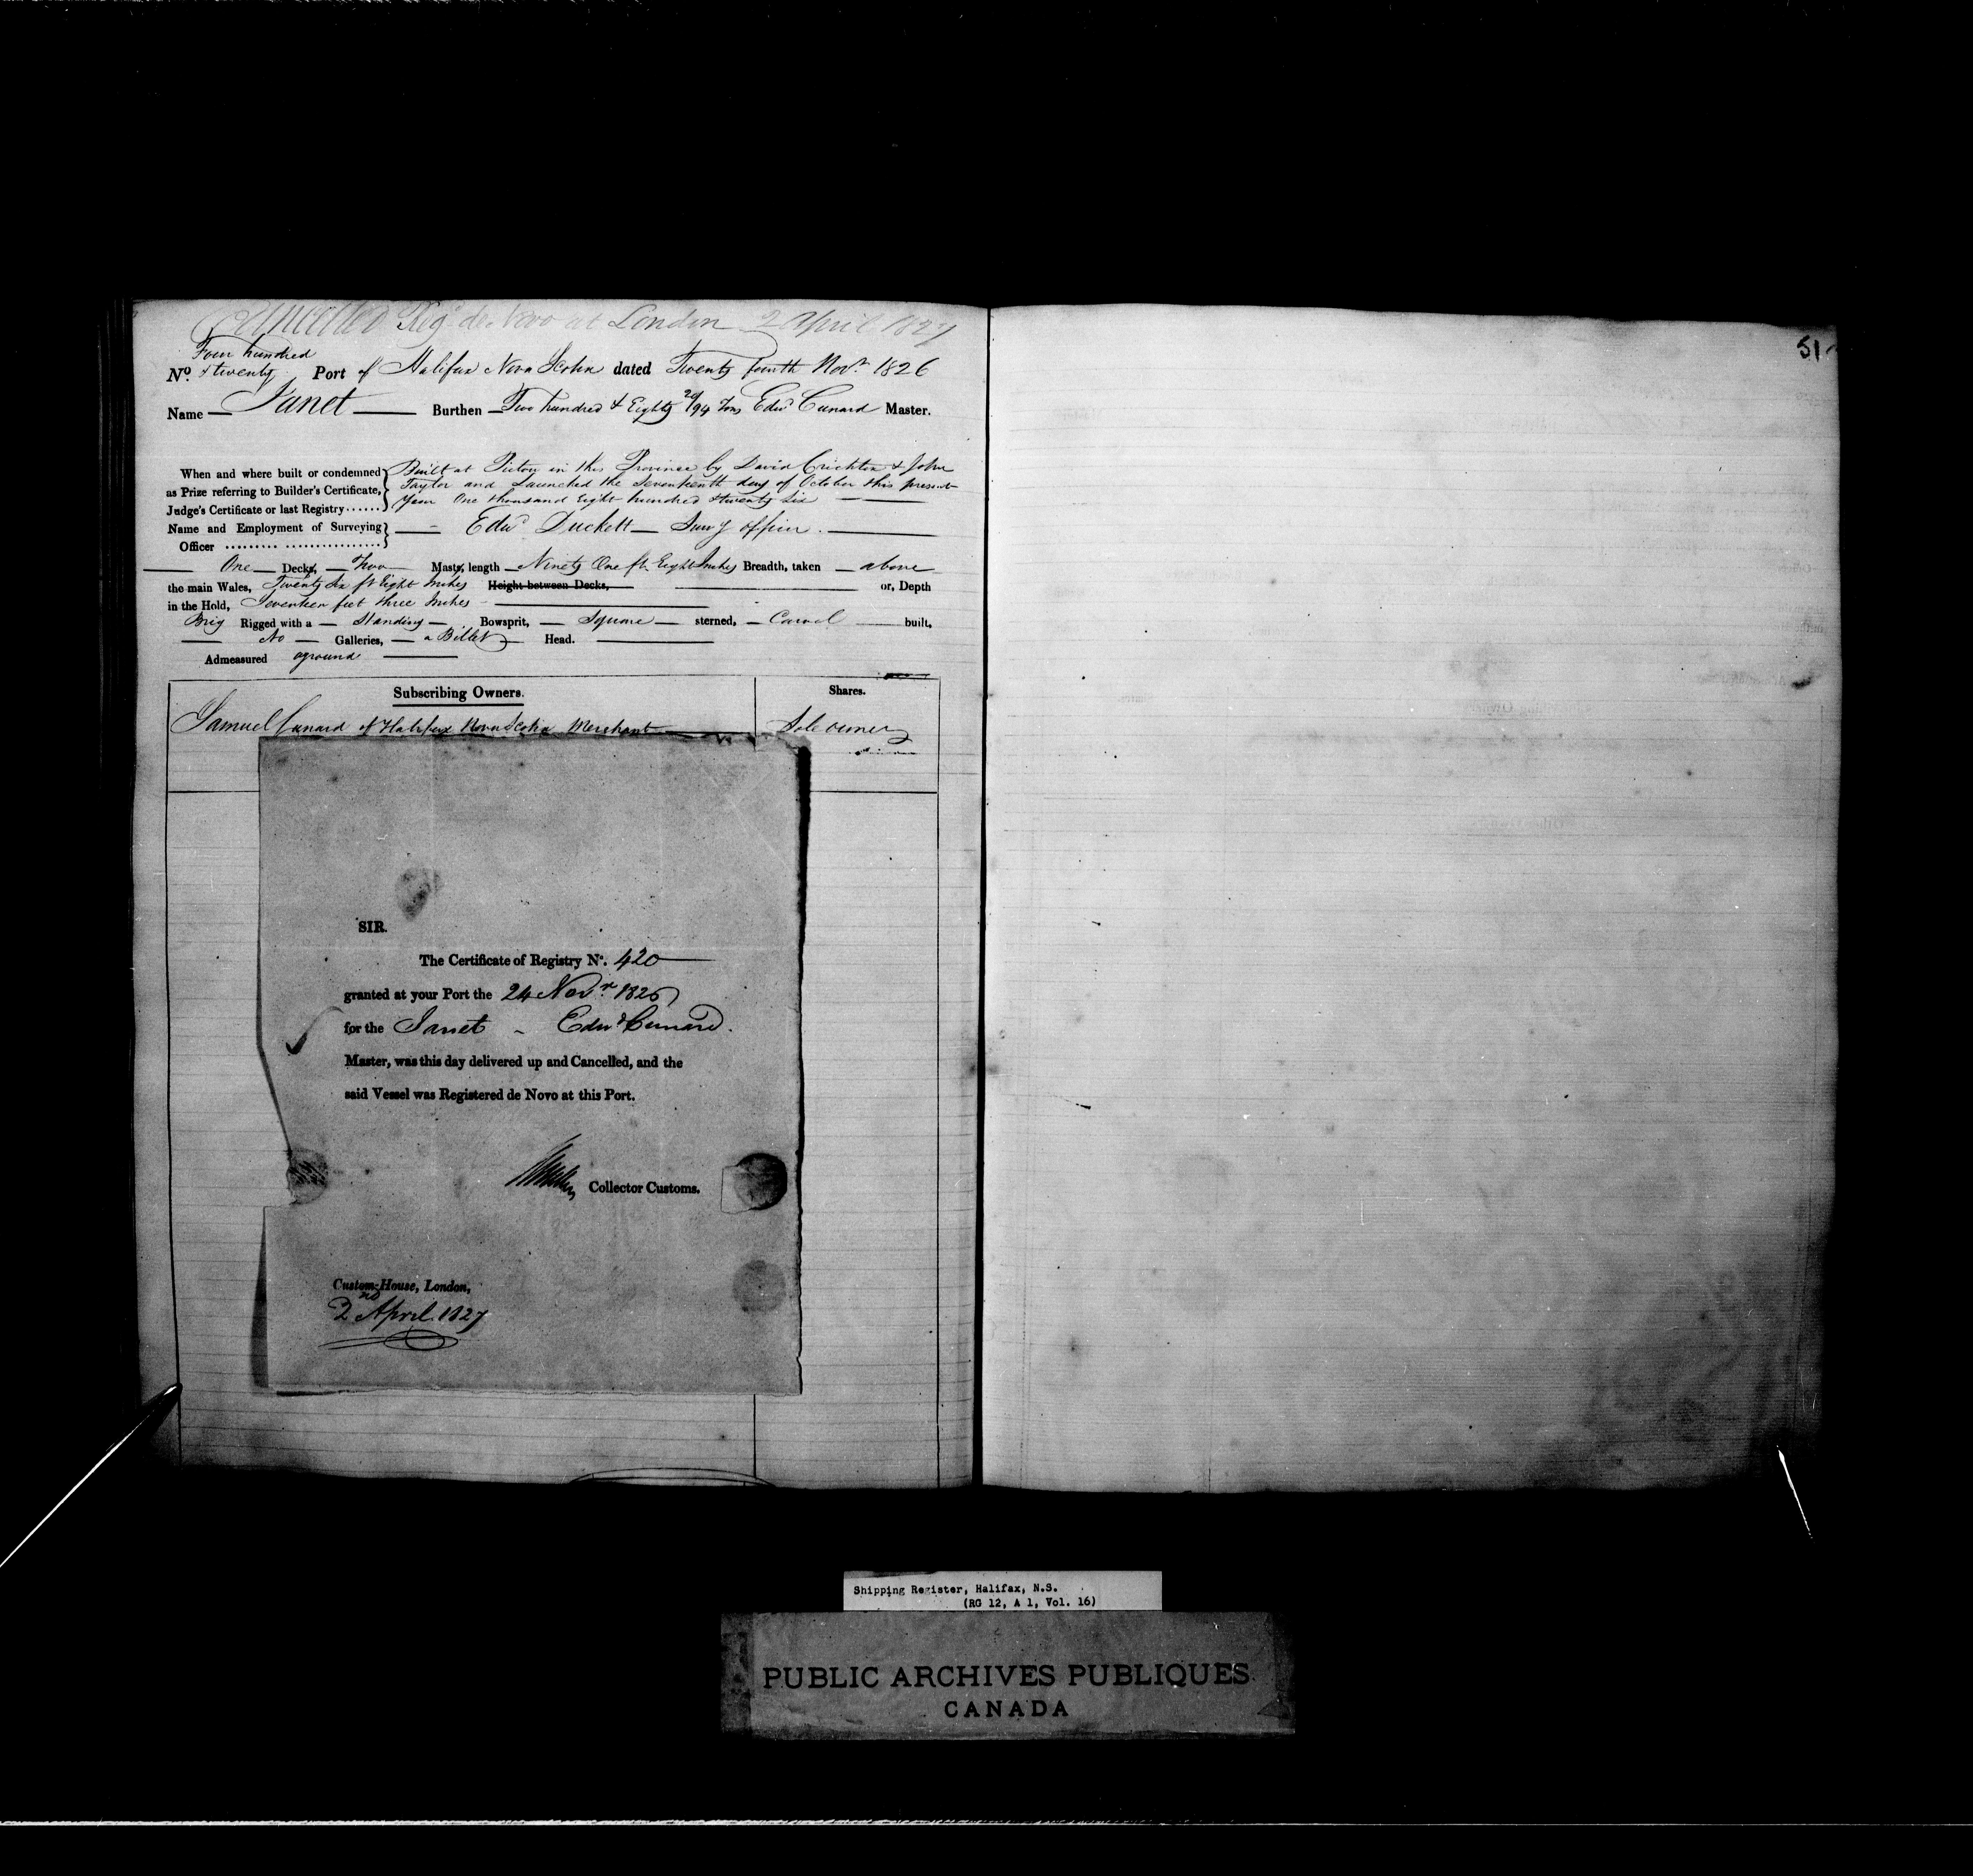 Cancelled Reg. de Novo at London 2 April 1827
Four hundred
No. & twenty Port of Halifax Nova Scotia dated Twenty fourth Novr 1826
Name — Janet — Burthen — Two hundred & Eighty 20/94 Tons Edwd Cunard Master.
When and where built or condemned Built at Pictou in this Province by David Crichton & John
as Prize referring to Builder's Certificate, Taylor and Launched the Seventeenth day of October this present
Judge's Certificate or last Registry...... Year One thousand Eight hundred & twenty Six
Name and Employment of Surveying — Edwd Duckett — Survg Officer.
Officer
One — Decks, — Two — Masts, length — Ninety One ft. Eight Inches Breadth, taken — above —
the main Wales, Twenty Six ft Eight Inches Height between Decks, or, Depth
in the Hold, Seventeen feet three Inches —
Brig Rigged with a — Standing — Bowsprit, — Square — sterned, — Carvel — built,
— No — Galleries, — a Billet — Head.
Admeasured aground
Subscribing Owners. Shares.
Samuel Cunard of Halifax Nova Scotia Merchant — Sole owner
SIR.
The Certificate of Registry No. 420
granted at your Port the 24 Novr 1826
for the Janet - Edwd Cunard.
Master, was this day delivered up and Cancelled, and the
said Vessel was Registered de Novo at this Port.
Collector Customs.
Custom-House, London,
2nd April. 1827
51
Shipping Register, Halifax, N.S.
(RG 12, A 1, Vol. 16)
PUBLIC ARCHIVES PUBLIQUES
CANADA